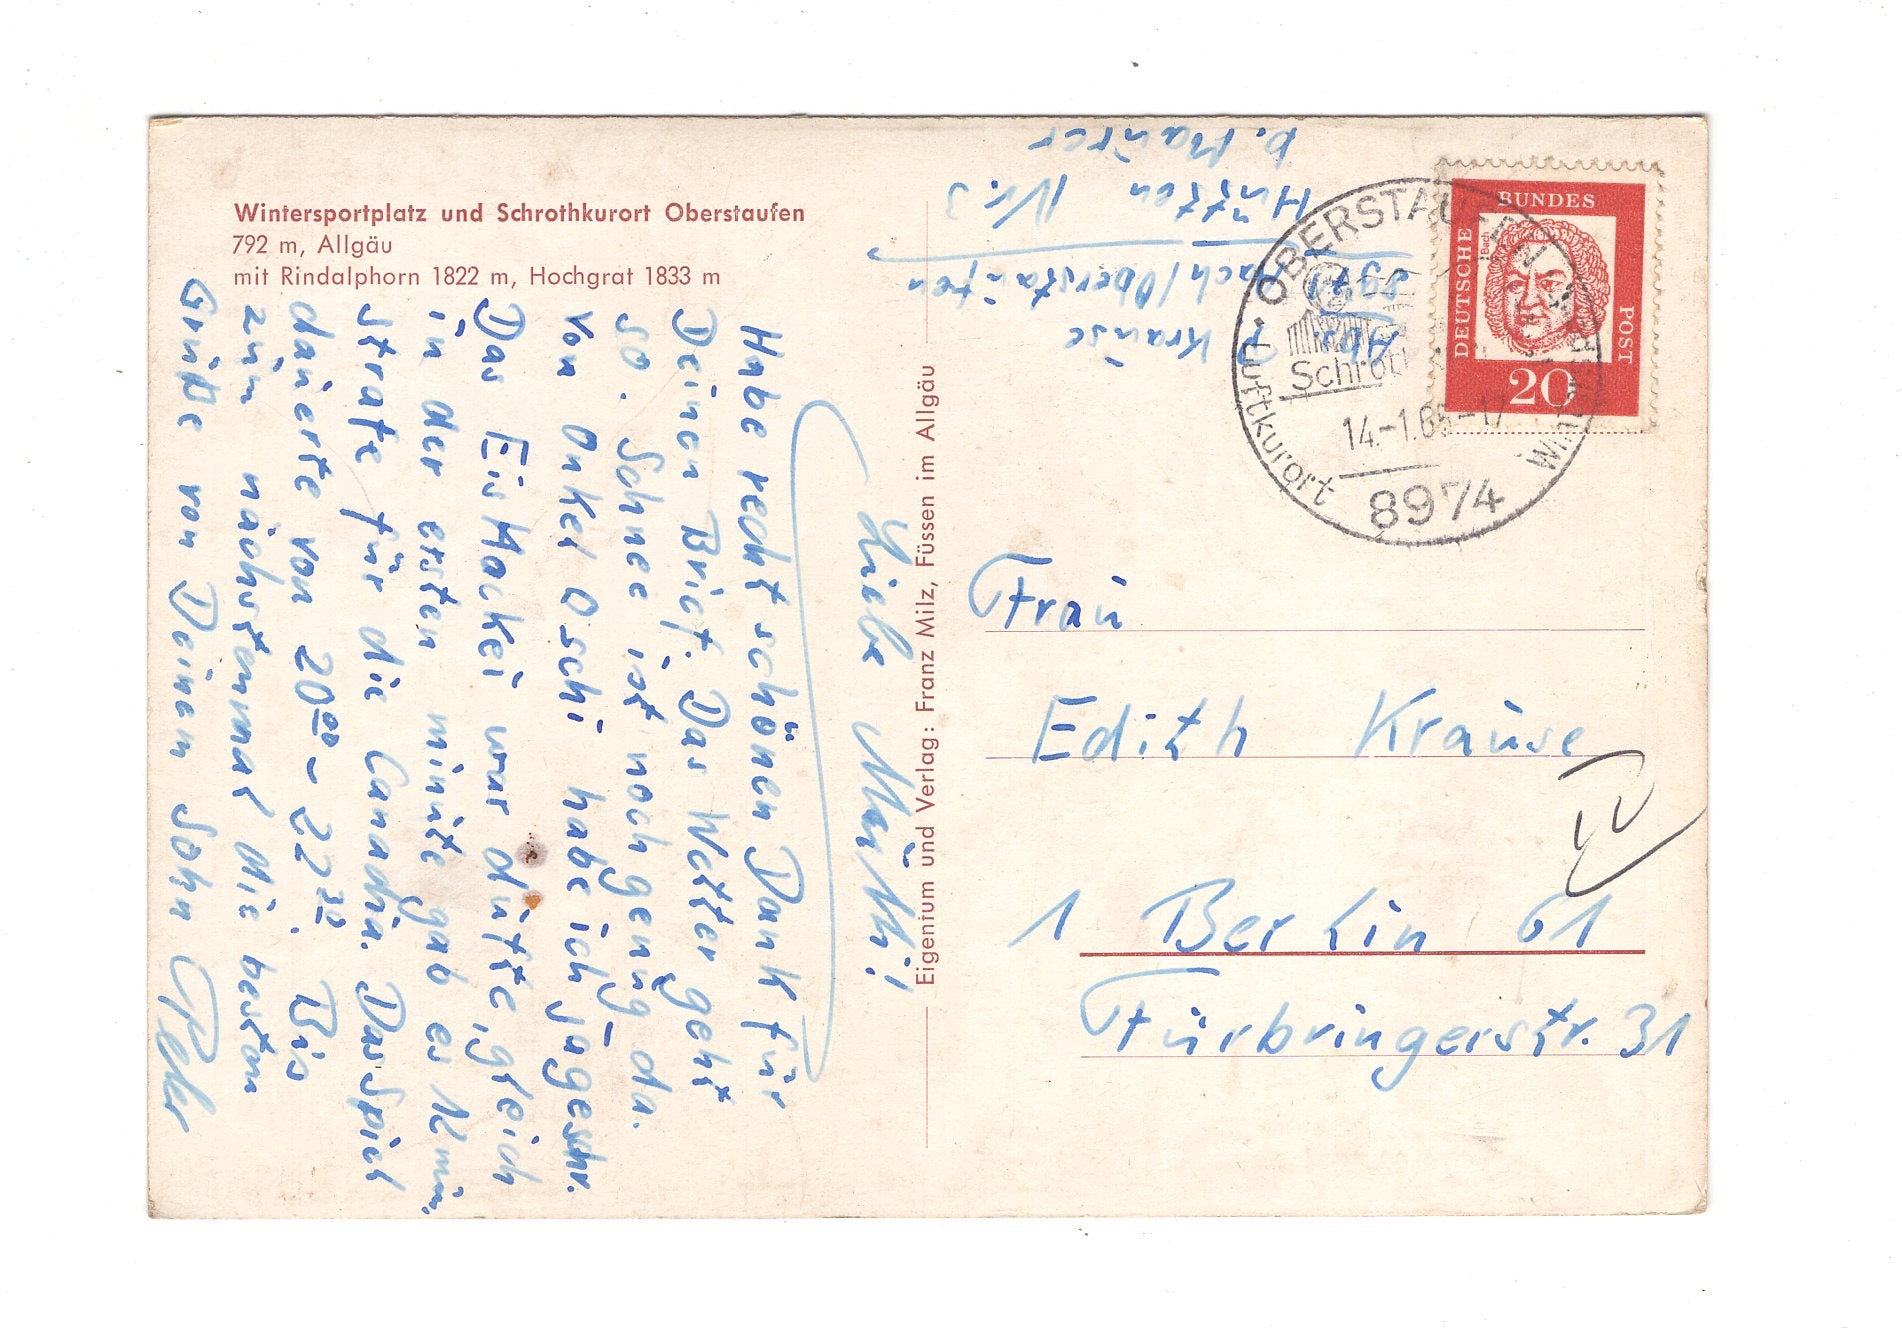 Wintersportplatz und Schrothkurort Oberstaufen
792 m, Allgäu
mit Rindalphorn 1822 m, Hochgrat 1833 m
Liebe Mutti!
Habe recht schönen Dank für
Deinen Brief. Das Wetter geht
so. Schnee ist noch genug da.
Von Onkel Oschi habe ich
Das Eishockei war dufte, gleich
in der ersten minute gab es 12 min.
strafe für die Canadia. Das Spiel
dauerte von 20⁰⁰ – 22³⁰. Bis
zum nächstenmal die besten
Grüße von Deinem Sohn Peter
Eigentum und Verlag: Franz Milz, Füssen im Allgäu
Abs. P. Krause
8971 ach/Oberstaufen
Hütten Nr. 3
b. Maurer
DEUTSCHE BUNDES POST
Bach
20
OBERSTAUFEN
Luftkurort
Schroth
14.-1.65-17
8974
Frau
Edith Krause
1 Berlin 61
Fürbringerstr. 31